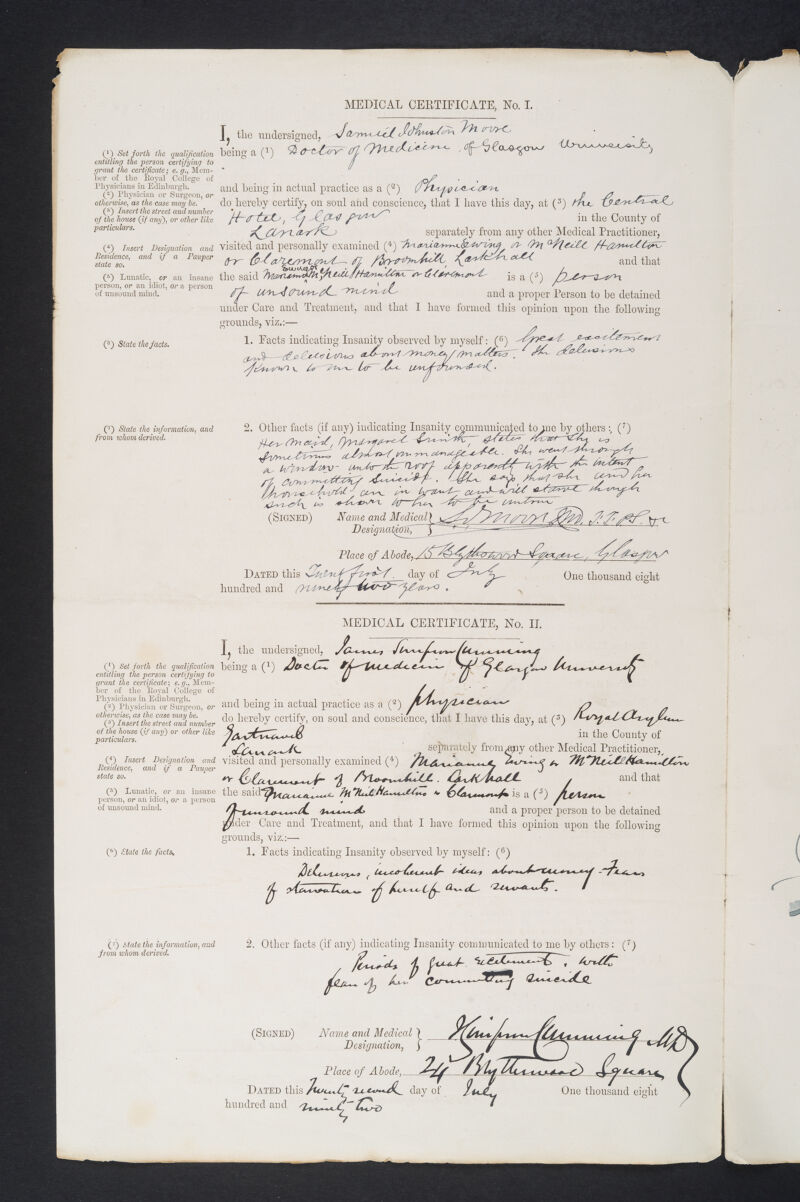 MEDICAL CERTIFICATE, No. I.
I, the undersigned, Samuel Johnston Moore
(¹) Set forth the qualification entitling the person certifying to grant the certificate; e. g., Member of the Royal College of Physicians in Edinburgh.
being a (¹) Doctor of Medicine of Glasgow University
(²) Physician or Surgeon, or otherwise, as the case may be.
and being in actual practice as a (²) Physician
(³) Insert the street and number of the house (if any), or other like particulars.
do hereby certify, on soul and conscience, that I have this day, at (³) the Central
Hotel, Glasgow in the County of
Lanark separately from any other Medical Practitioner,
(⁴) Insert Designation and Residence, and if a Pauper state so.
visited and personally examined (⁴) Marianne Ewing or McNeill Hamilton
or Claremont of Broomhill Larkhall and that
(⁵) Lunatic, or an insane person, or an idiot, or a person of unsound mind.
the said Marianne Ewing or McNeill Hamilton or Claremont is a (⁵) person
of unsound mind and a proper Person to be detained
under Care and Treatment, and that I have formed this opinion upon the following
grounds, viz.:—
(⁶) State the facts.
1. Facts indicating Insanity observed by myself: (⁶) Great excitement
and delusions about money matters. The delusions
known to me to be unfounded.
(⁷) State the information, and from whom derived.
2. Other facts (if any) indicating Insanity communicated to me by others: (⁷)
Her maid, Margaret Smith states that she is
sometimes almost unmanageable. She went through
a window unto the roof apparently with the intent
of committing Suicide. She says that she and her
household are in want and will starve though
such is shown to her to be untrue
(SIGNED) Name and Medical Designation, S. J. Moore M.D.
Place of Abode, 15 Blythswood Square, Glasgow
DATED this Twenty first day of July One thousand eight
hundred and ninety two years.
MEDICAL CERTIFICATE, No. II.
I, the undersigned, James Simpson Cumming
(¹) Set forth the qualification entitling the person certifying to grant the certificate; e. g., Member of the Royal College of Physicians in Edinburgh.
being a (¹) Doctor of medicine of Glasgow University
(²) Physician or Surgeon, or otherwise, as the case may be.
and being in actual practice as a (²) physician
(³) Insert the street and number of the house (if any) or other like particulars.
do hereby certify, on soul and conscience, that I have this day, at (³) Royal Asylum
Gartnavel in the County of
Lanark separately from any other Medical Practitioner,
(⁴) Insert Designation and Residence, and if a Pauper state so.
visited and personally examined (⁴) Marianne Ewing or McNeill Hamilton
or Claremont of Broomhill. Larkhall and that
(⁵) Lunatic, or an insane person, or an idiot, or a person of unsound mind.
the said Marianne McNeil Hamilton or Claremont is a (⁵) person
of unsound mind and a proper person to be detained
under Care and Treatment, and that I have formed this opinion upon the following
grounds, viz.:—
(⁶) State the facts.
1. Facts indicating Insanity observed by myself: (⁶)
Delusions, incoherent ideas about money - Fears
of starvation of herself and servants.
(⁷) State the information, and from whom derived.
2. Other facts (if any) indicating Insanity communicated to me by others: (⁷)
Periods of great excitement, with
fear of her committing suicide
(SIGNED) Name and Medical Designation, J Simpson Cumming MD
Place of Abode, 24 Blythswood Square
DATED this Twenty second day of July One thousand eight
hundred and ninety two